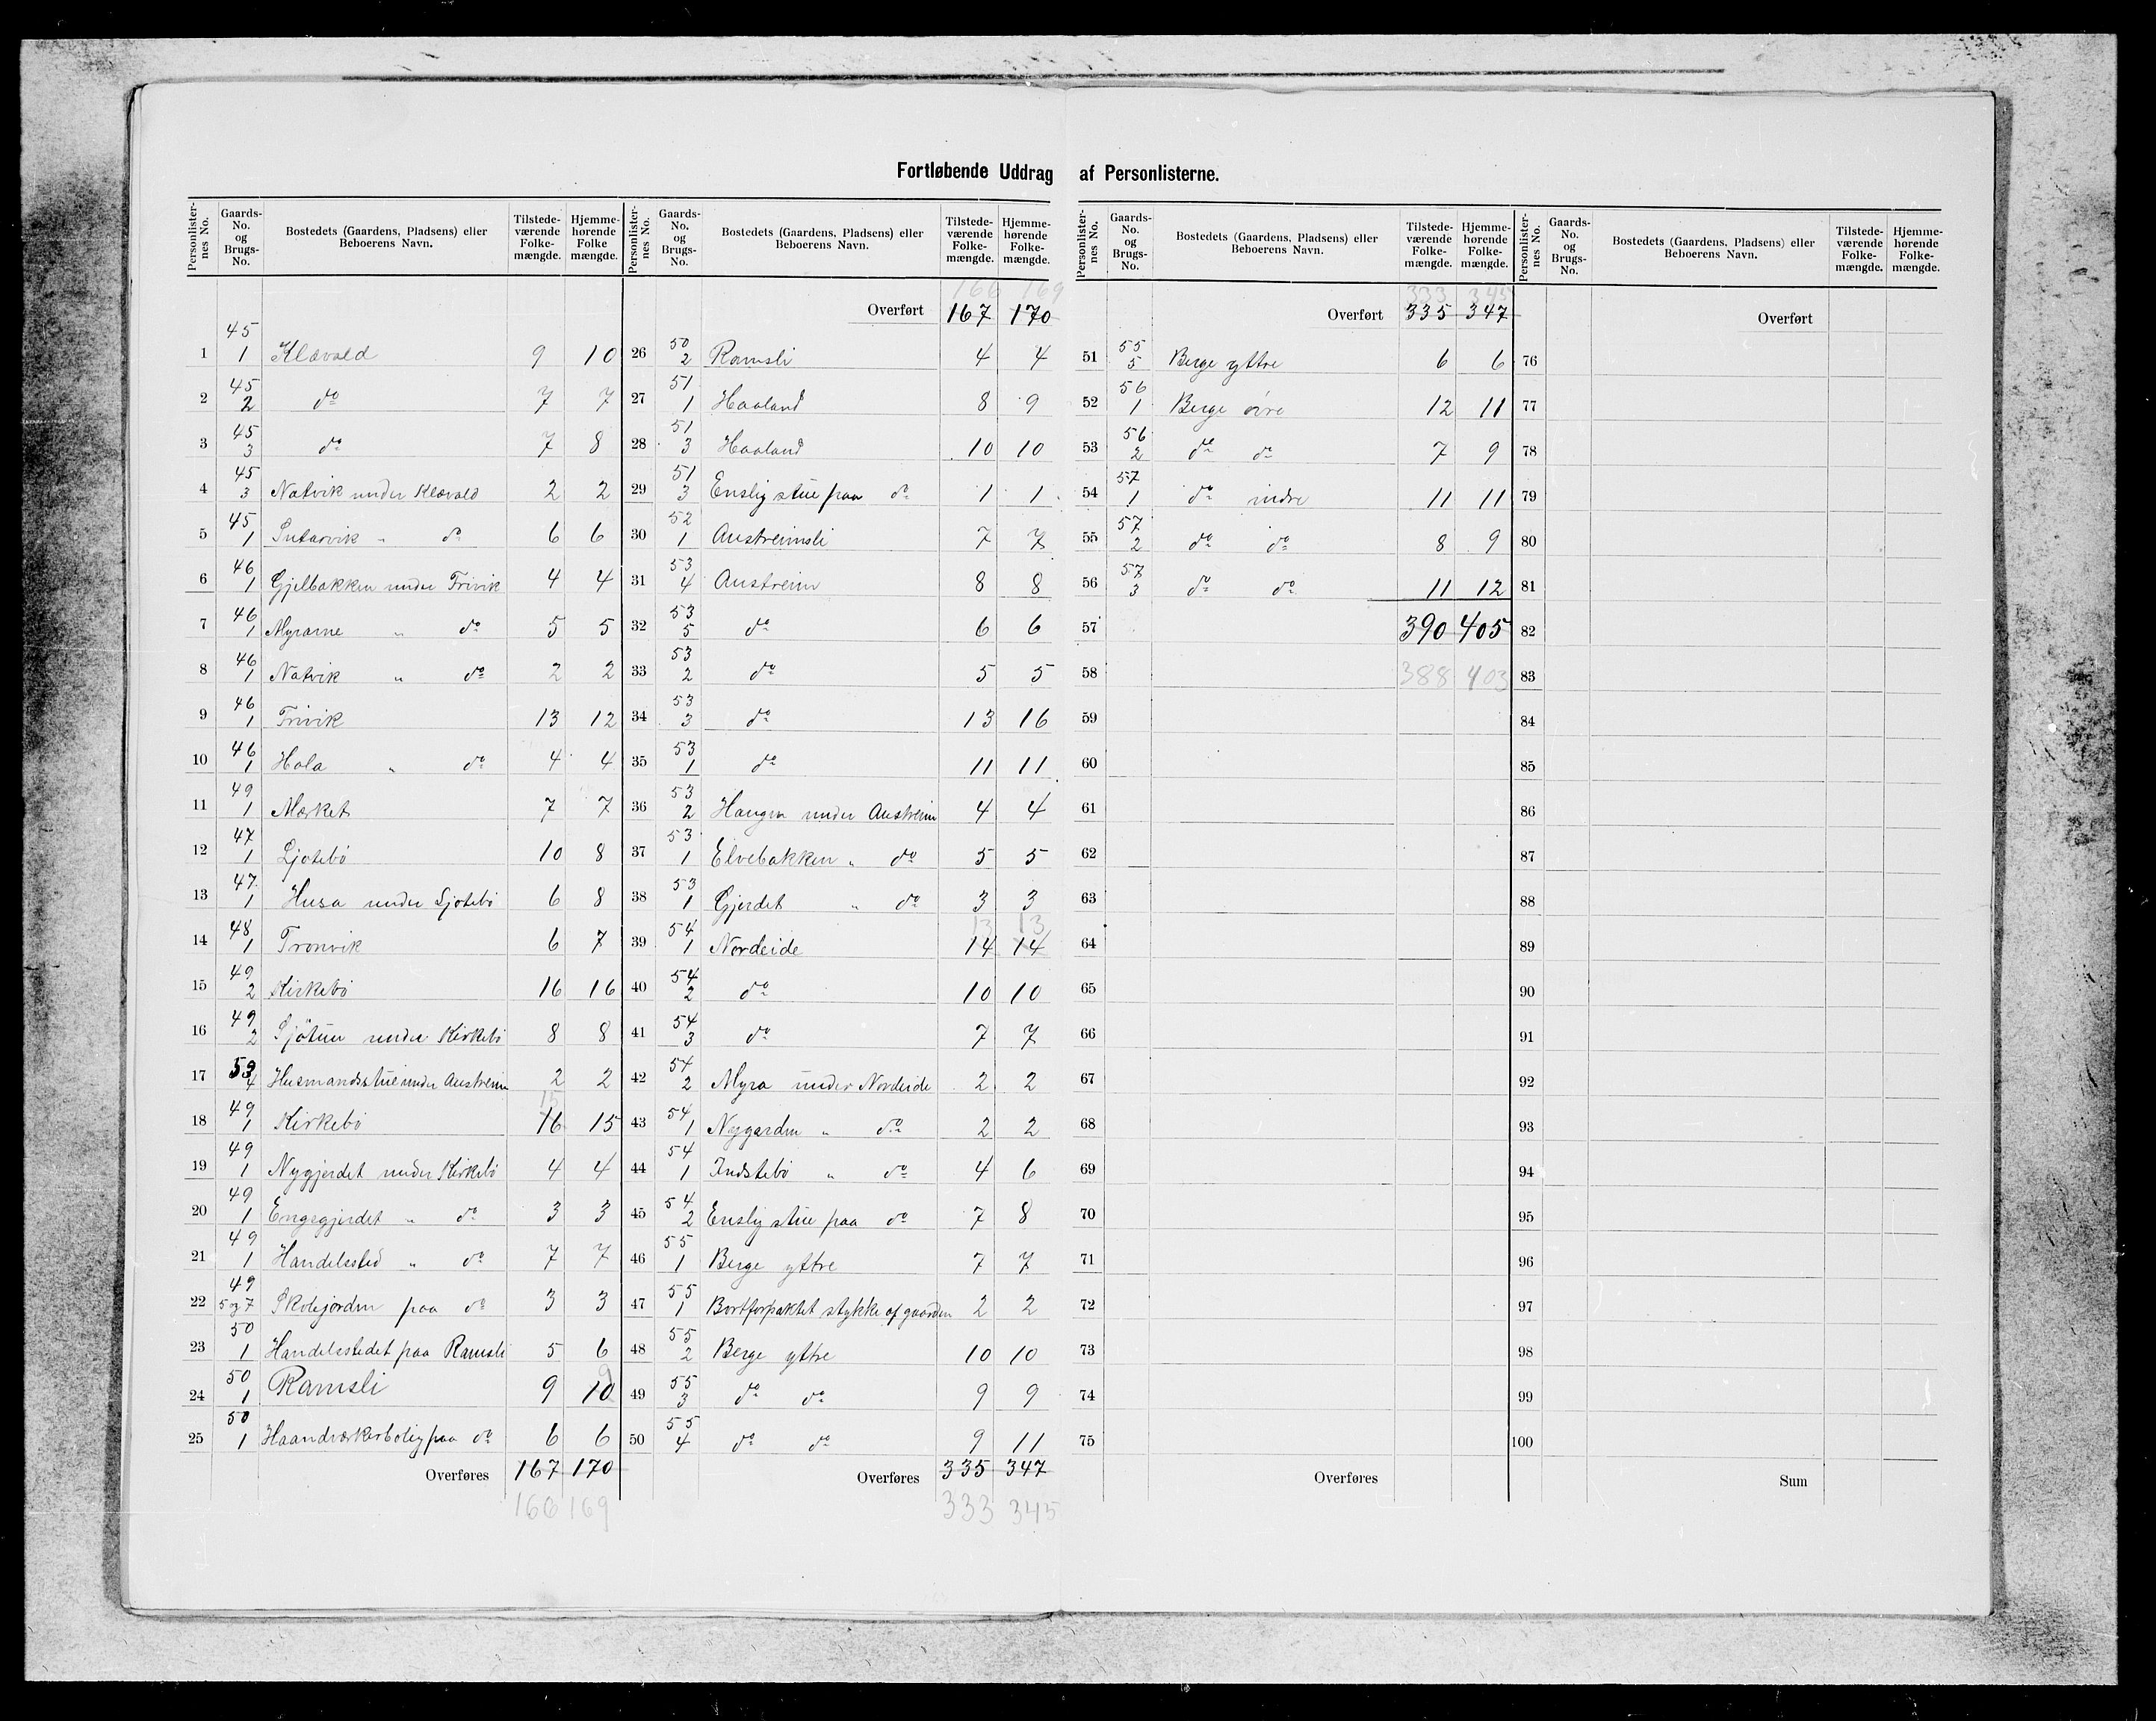 Fortløbende Uddrag af Personlisterne.
Personlister-nes No. | Gaards-No. og Brugs-No. | Bostedets (Gaardens, Pladsens) eller Beboerens Navn. | Tilstede-værende Folke-mængde. | Hjemme-hørende Folke mængde.
1 | 45 1 | Klævold | 9 | 10
2 | 45 2 | do | 7 | 7
3 | 45 3 | do | 7 | 8
4 | 45 3 | Natvik under Klævold | 2 | 2
5 | 45 1 | Sutarvik " do | 6 | 6
6 | 46 1 | Gjelbakken under Trivik | 4 | 4
7 | 46 1 | Myrarne " do | 5 | 5
8 | 46 1 | Natvik " do | 2 | 2
9 | 46 1 | Trivik | 13 | 12
10 | 46 1 | Hola " do | 4 | 4
11 | 49 1 | Mærket | 7 | 7
12 | 47 1 | Ljotebö | 10 | 8
13 | 47 1 | Husa under Ljotebö | 6 | 8
14 | 48 1 | Tronvik | 6 | 7
15 | 49 2 | Kirkebö | 16 | 16
16 | 49 2 | Sjötun under Kirkebö | 8 | 8
17 | 53 4 | Husmandsstue under Austreim | 2 | 2
18 | 49 1 | Kirkebö | 16 15 | 15
19 | 49 1 | Nygjerdet under Kirkebö | 4 | 4
20 | 49 1 | Engegjerdet " do | 3 | 3
21 | 49 1 | Handelssted " do | 7 | 7
22 | 49 5 og 7 | Skolejorden paa do | 3 | 3
23 | 50 1 | Handelsstedet paa Ramsli | 5 | 6
24 | 50 1 | Ramsli | 9 | 10 9
25 | 50 1 | Haandværkerbolig paa do | 6 | 6
Overføres | 167 | 170
166 | 169
Personlister-nes No. | Gaards-No. og Brugs-No. | Bostedets (Gaardens, Pladsens) eller Beboerens Navn. | Tilstede-værende Folke-mængde. | Hjemme-hørende Folke-mængde.
166 | 169
Overført | 167 | 170
26 | 50 2 | Ramsli | 4 | 4
27 | 51 1 | Haaland | 8 | 9
28 | 51 3 | Haaland | 10 | 10
29 | 51 3 | Enslig stue paa do | 1 | 1
30 | 52 1 | Austreimsli | 7 | 7
31 | 53 4 | Austreim | 8 | 8
32 | 53 5 | do | 6 | 6
33 | 53 2 | do | 5 | 5
34 | 53 3 | do | 13 | 16
35 | 53 1 | do | 11 | 11
36 | 53 2 | Haugen under Austreim | 4 | 4
37 | 53 1 | Elvebakken " do | 5 | 5
38 | 53 1 | Gjerdet " do | 3 | 3
13 | 13
39 | 54 1 | Nordeide | 14 | 14
40 | 54 2 | do | 10 | 10
41 | 54 3 | do | 7 | 7
42 | 54 2 | Myra under Nordeide | 2 | 2
43 | 54 1 | Nygarden " do | 2 | 2
44 | 54 1 | Indstebö " do | 4 | 6
45 | 54 2 | Enslig stue paa do | 7 | 8
46 | 55 1 | Berge yttre | 7 | 7
47 | 55 1 | Bortforpaktet stykke af gaarden | 2 | 2
48 | 55 2 | Berge yttre | 10 | 10
49 | 55 3 | do do | 9 | 9
50 | 55 4 | do do | 9 | 11
Overføres | 335 | 347
333 | 345
Personlister-nes No. | Gaards-No. og Brugs-No. | Bostedets (Gaardens, Pladsens) eller Beboerens Navn. | Tilstede-værende Folke-mængde. | Hjemme-hørende Folke-mængde.
333 | 345
Overført | 335 | 347
51 | 55 5 | Berge yttre | 6 | 6
52 | 56 1 | Berge övre | 12 | 11
53 | 56 2 | do do | 7 | 9
54 | 57 1 | do indre | 11 | 11
55 | 57 2 | do do | 8 | 9
56 | 57 3 | do do | 11 | 12
57 | 390 | 405
58 | 388 | 403
59
60
61
62
63
64
65
66
67
68
69
70
71
72
73
74
75
Overføres
Personlister-nes No. | Gaards-No. og Brugs-No. | Bostedets (Gaardens, Pladsens) eller Beboerens Navn. | Tilstede-værende Folke-mængde. | Hjemme-hørende Folke-mængde.
Overført
76
77
78
79
80
81
82
83
84
85
86
87
88
89
90
91
92
93
94
95
96
97
98
99
100
Sum